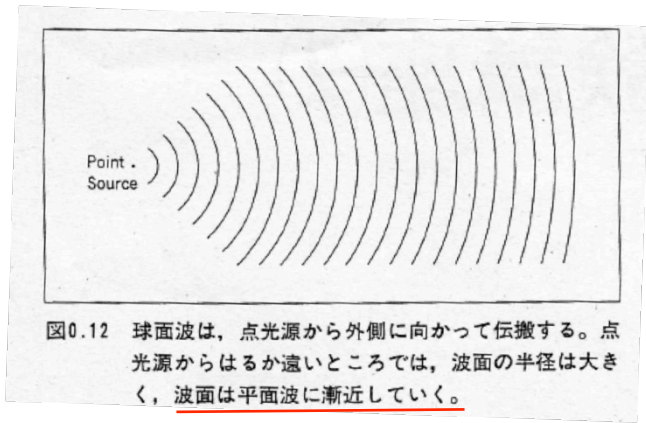 Point
Source
図0.12 球面波は，点光源から外側に向かって伝搬する。点
光源からはるか遠いところでは，波面の半径は大き
く，波面は平面波に漸近していく。